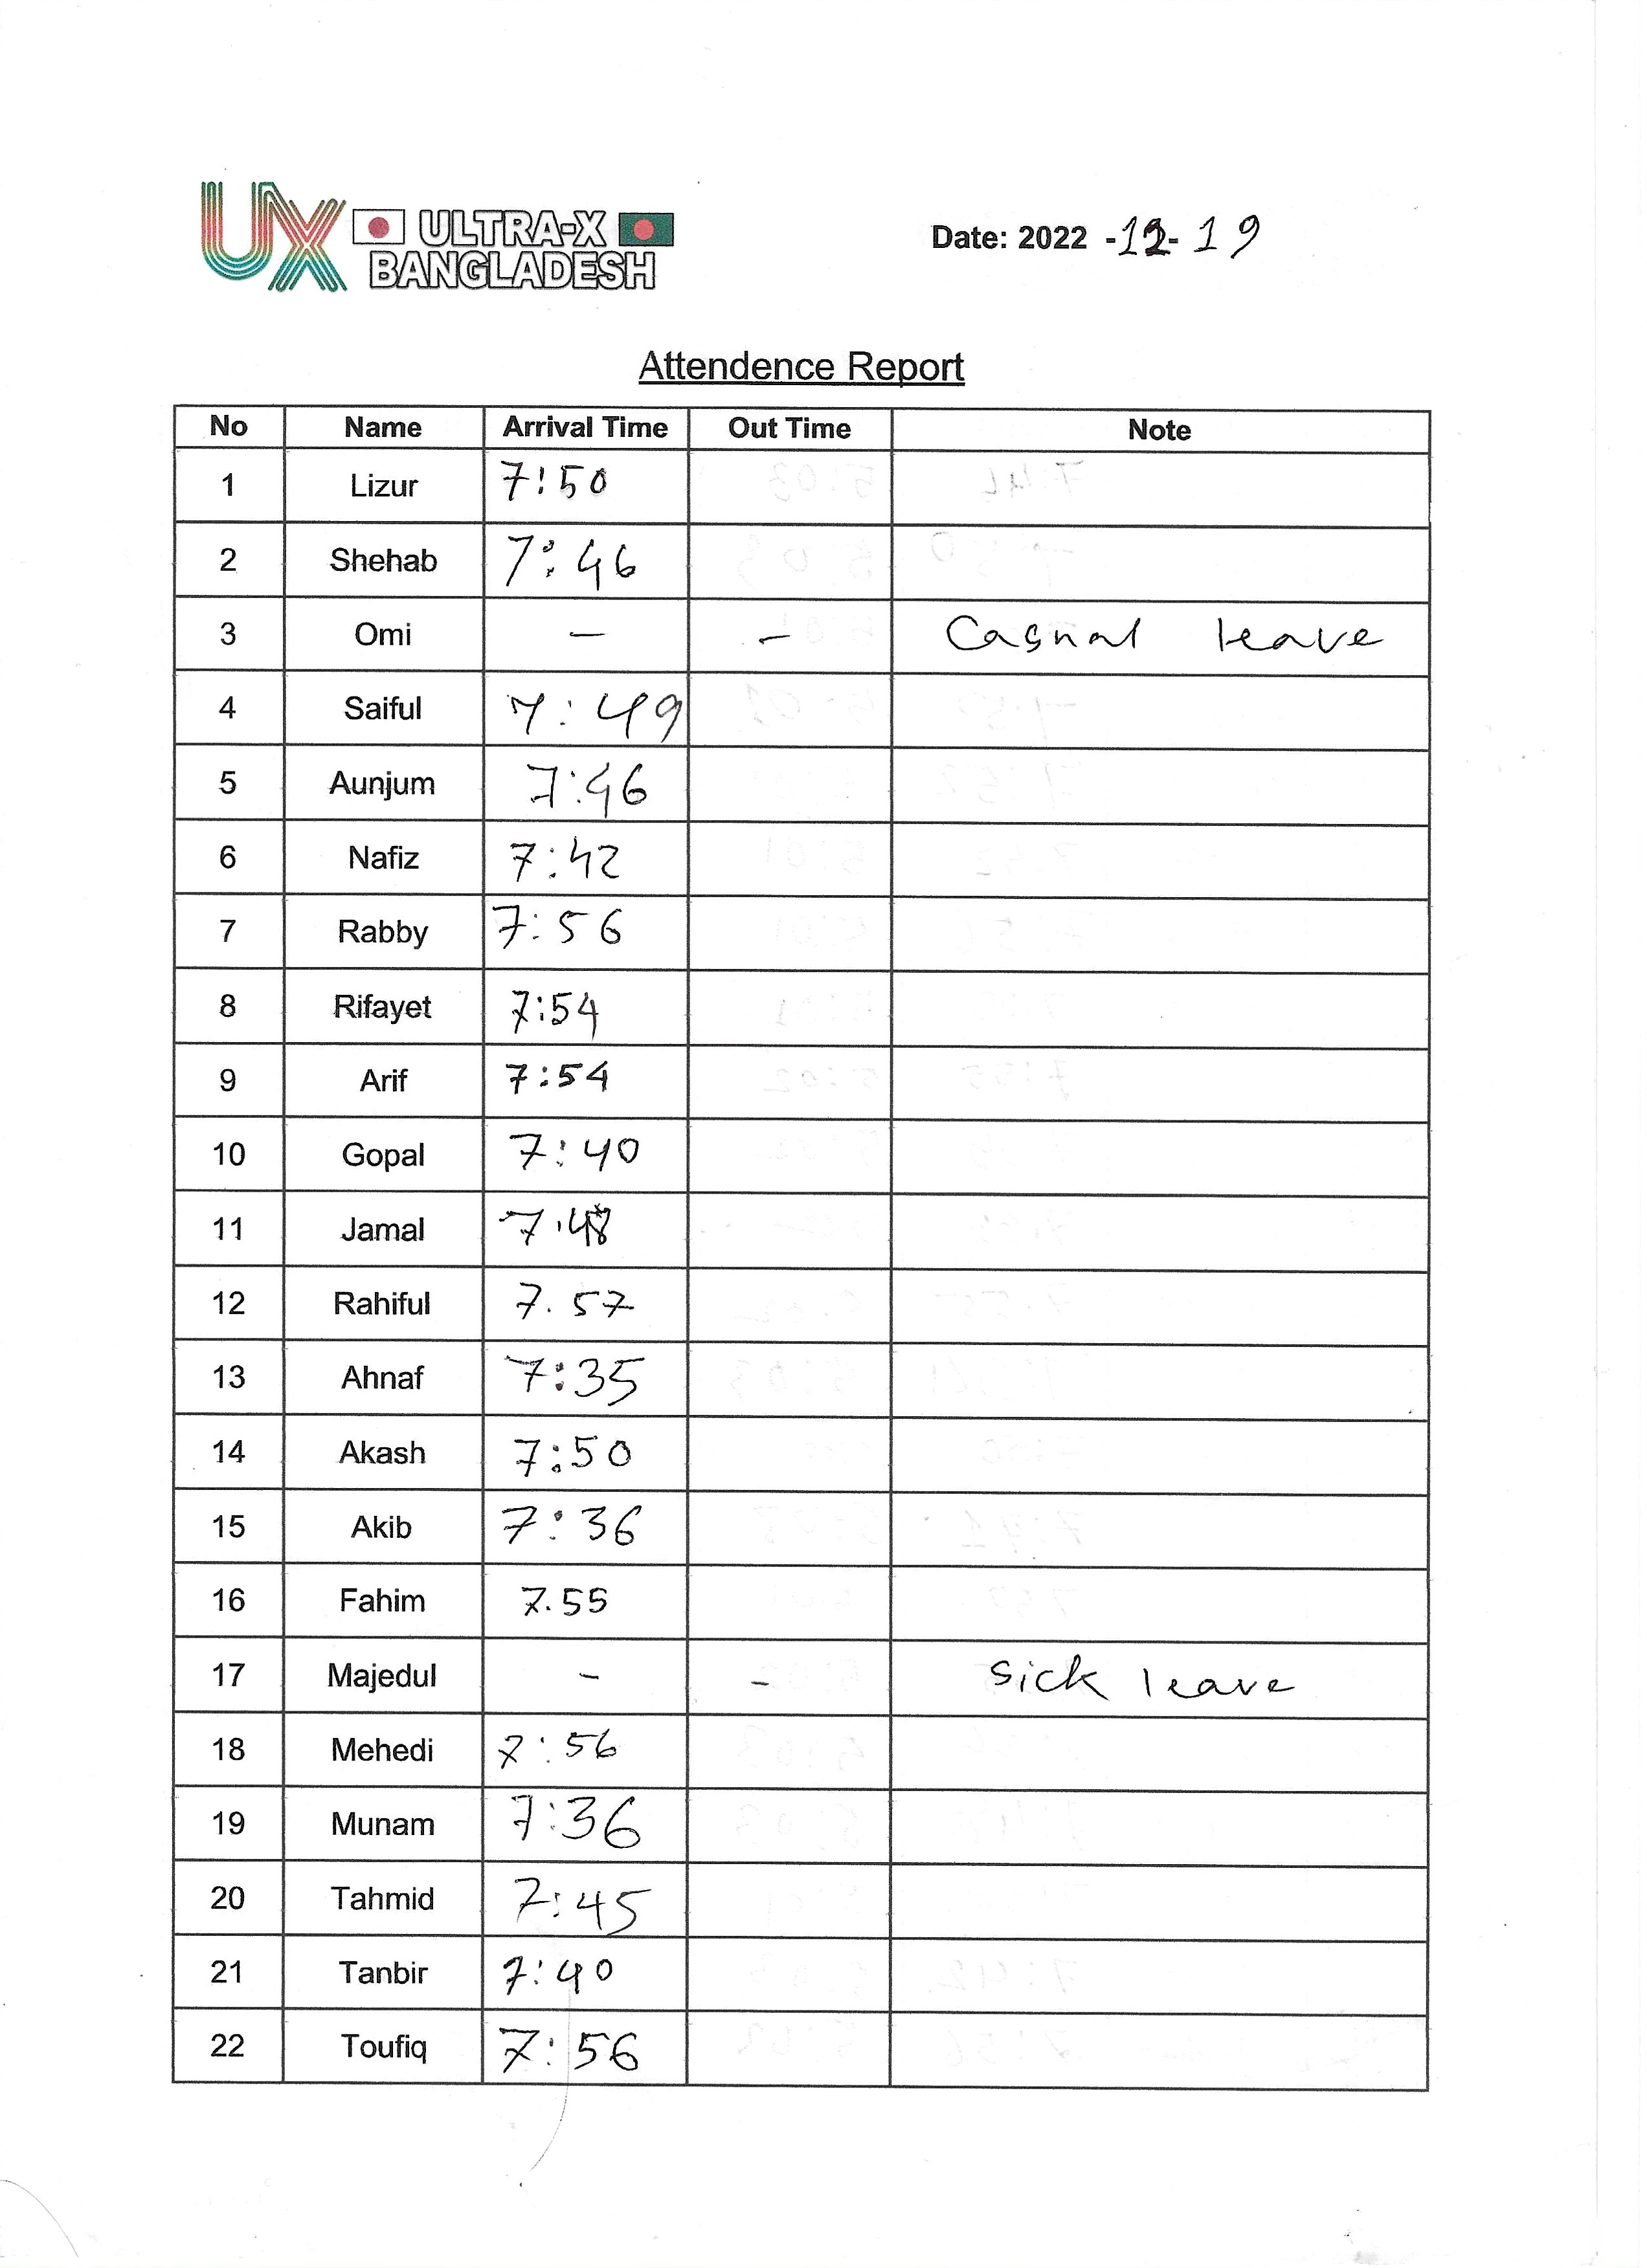 UX ULTRA-X
BANGLADESH
Date: 2022 -12- 19
Attendence Report
No Name Arrival Time Out Time Note
1 Lizur 7:50
2 Shehab 7:46
3 Omi — — Casual leave
4 Saiful 7:49
5 Aunjum 7:46
6 Nafiz 7:42
7 Rabby 7:56
8 Rifayet 7:54
9 Arif 7:54
10 Gopal 7:40
11 Jamal 7.48
12 Rahiful 7.57
13 Ahnaf 7:35
14 Akash 7:50
15 Akib 7:36
16 Fahim 7.55
17 Majedul - - Sick leave
18 Mehedi 7:56
19 Munam 7:36
20 Tahmid 7:45
21 Tanbir 7:40
22 Toufiq 7:56